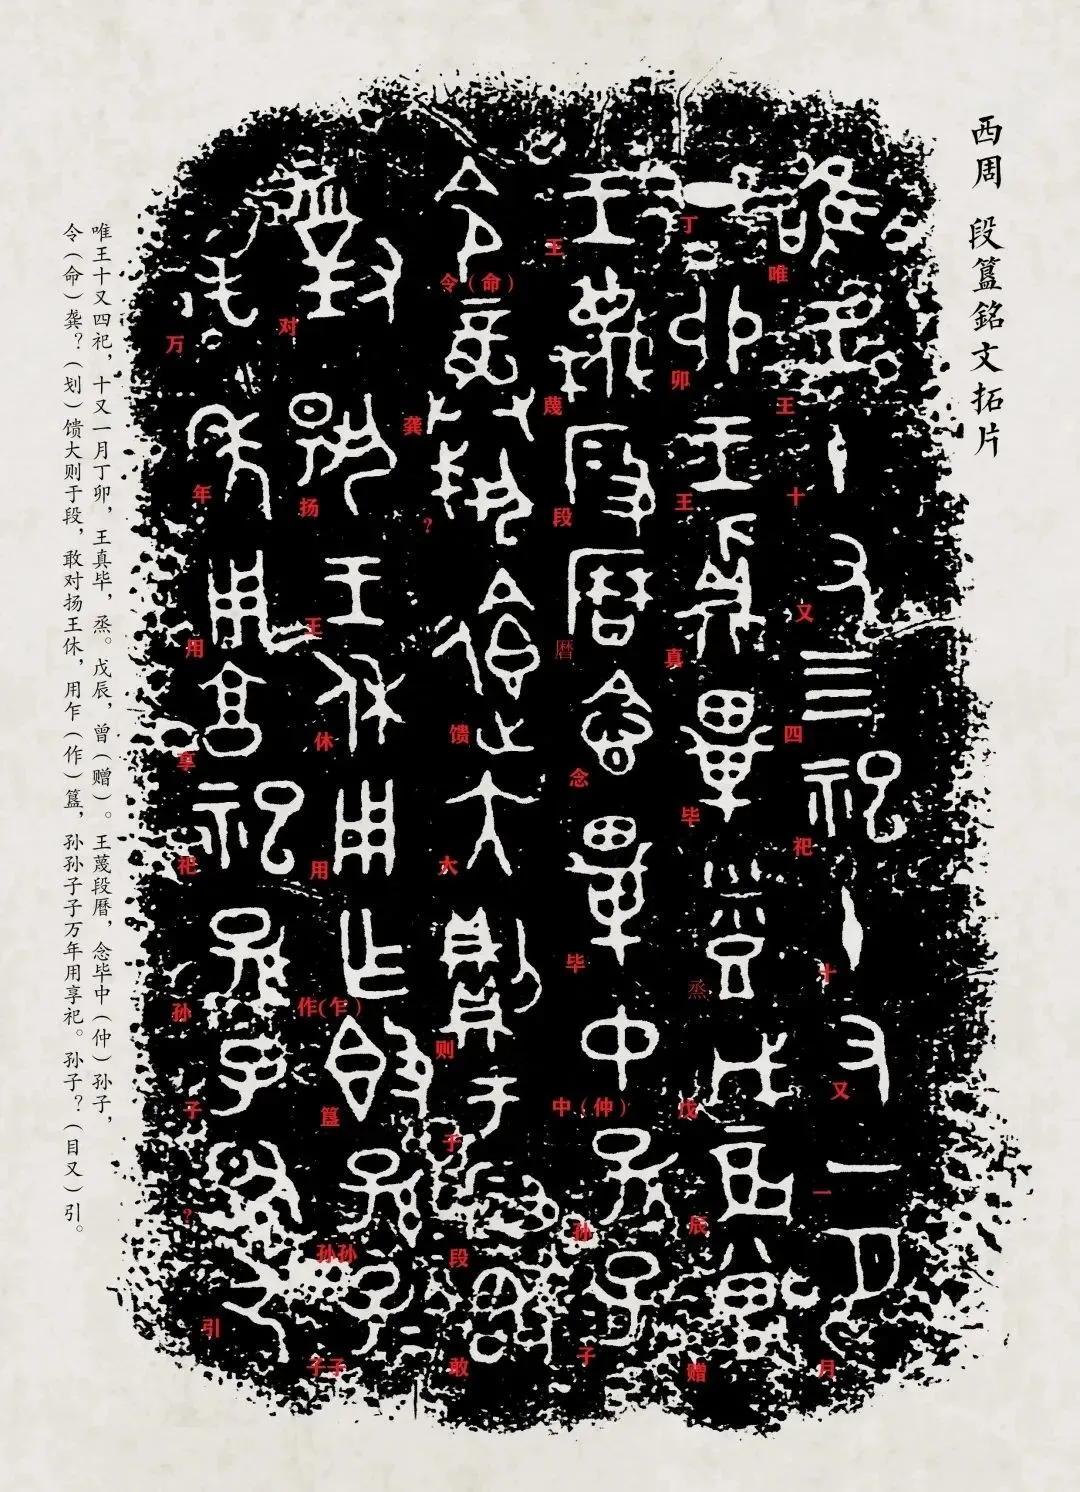 西周 段簋銘文拓片
唯王十又四祀十又一月
丁卯王真毕烝戊辰赠
王蔑段曆念毕中（仲）孙子
令（命）龚?馈大则于段敢
对扬王休用作(乍)簋孙孙子子
万年用享祀孙子?引
唯王十又四祀，十又一月丁卯，王真毕，烝。戊辰，曾（赠）。王蔑段曆，念毕中（仲）孙子，
令（命）龚？（划）馈大则于段，敢对扬王休，用乍（作）簋，孙孙子子万年用享祀。孙子？（目又）引。